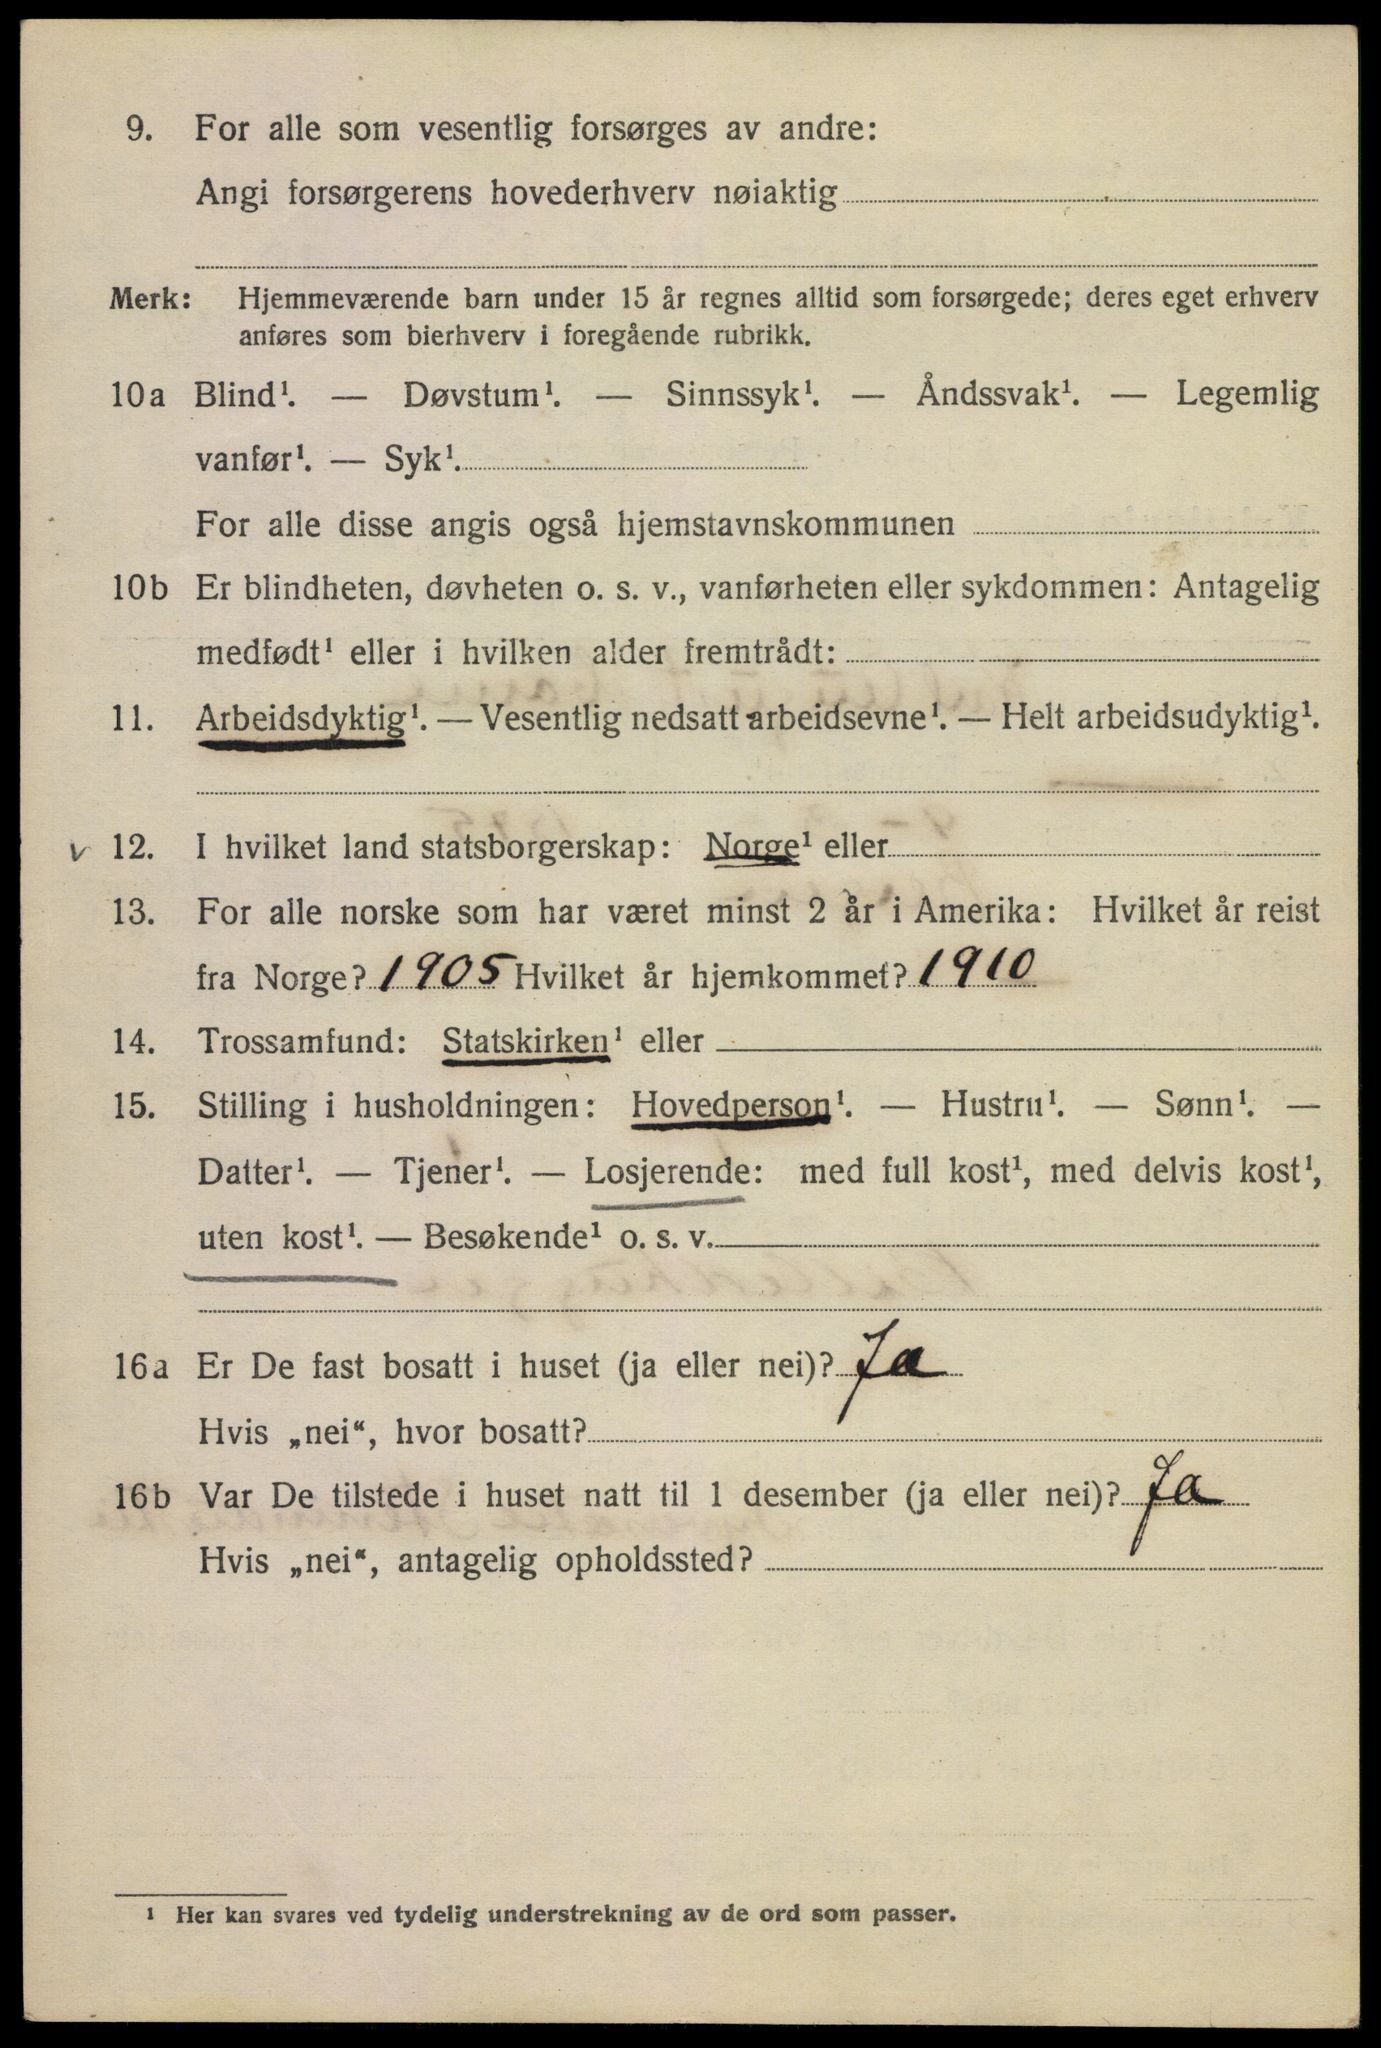 9. For alle som vesentlig forsørges av andre:
Angi forsørgerens hovederhverv nøiaktig
Merk: Hjemmeværende barn under 15 år regnes alltid som forsørgede; deres eget erhverv
anføres som bierhverv i foregående rubrikk.
10a Blind¹. — Døvstum¹. — Sinnssyk¹. — Åndssvak¹. — Legemlig
vanfør¹. — Syk¹.
For alle disse angis også hjemstavnskommunen
10b Er blindheten, døvheten o. s. v., vanførheten eller sykdommen: Antagelig
medfødt¹ eller i hvilken alder fremtrådt:
11. Arbeidsdyktig¹. — Vesentlig nedsatt arbeidsevne¹. — Helt arbeidsudyktig¹.
v 12. I hvilket land statsborgerskap: Norge¹ eller
13. For alle norske som har været minst 2 år i Amerika: Hvilket år reist
fra Norge? 1905 Hvilket år hjemkommet? 1910
14. Trossamfund: Statskirken¹ eller
15. Stilling i husholdningen: Hovedperson¹. — Hustru¹. — Sønn¹. —
Datter¹. — Tjener¹. — Losjerende: med full kost¹, med delvis kost¹,
uten kost¹. — Besøkende¹ o. s. v.
16a Er De fast bosatt i huset (ja eller nei)? Ja
Hvis „nei“, hvor bosatt?
16b Var De tilstede i huset natt til 1 desember (ja eller nei)? Ja
Hvis „nei“, antagelig opholdssted?
¹ Her kan svares ved tydelig understrekning av de ord som passer.